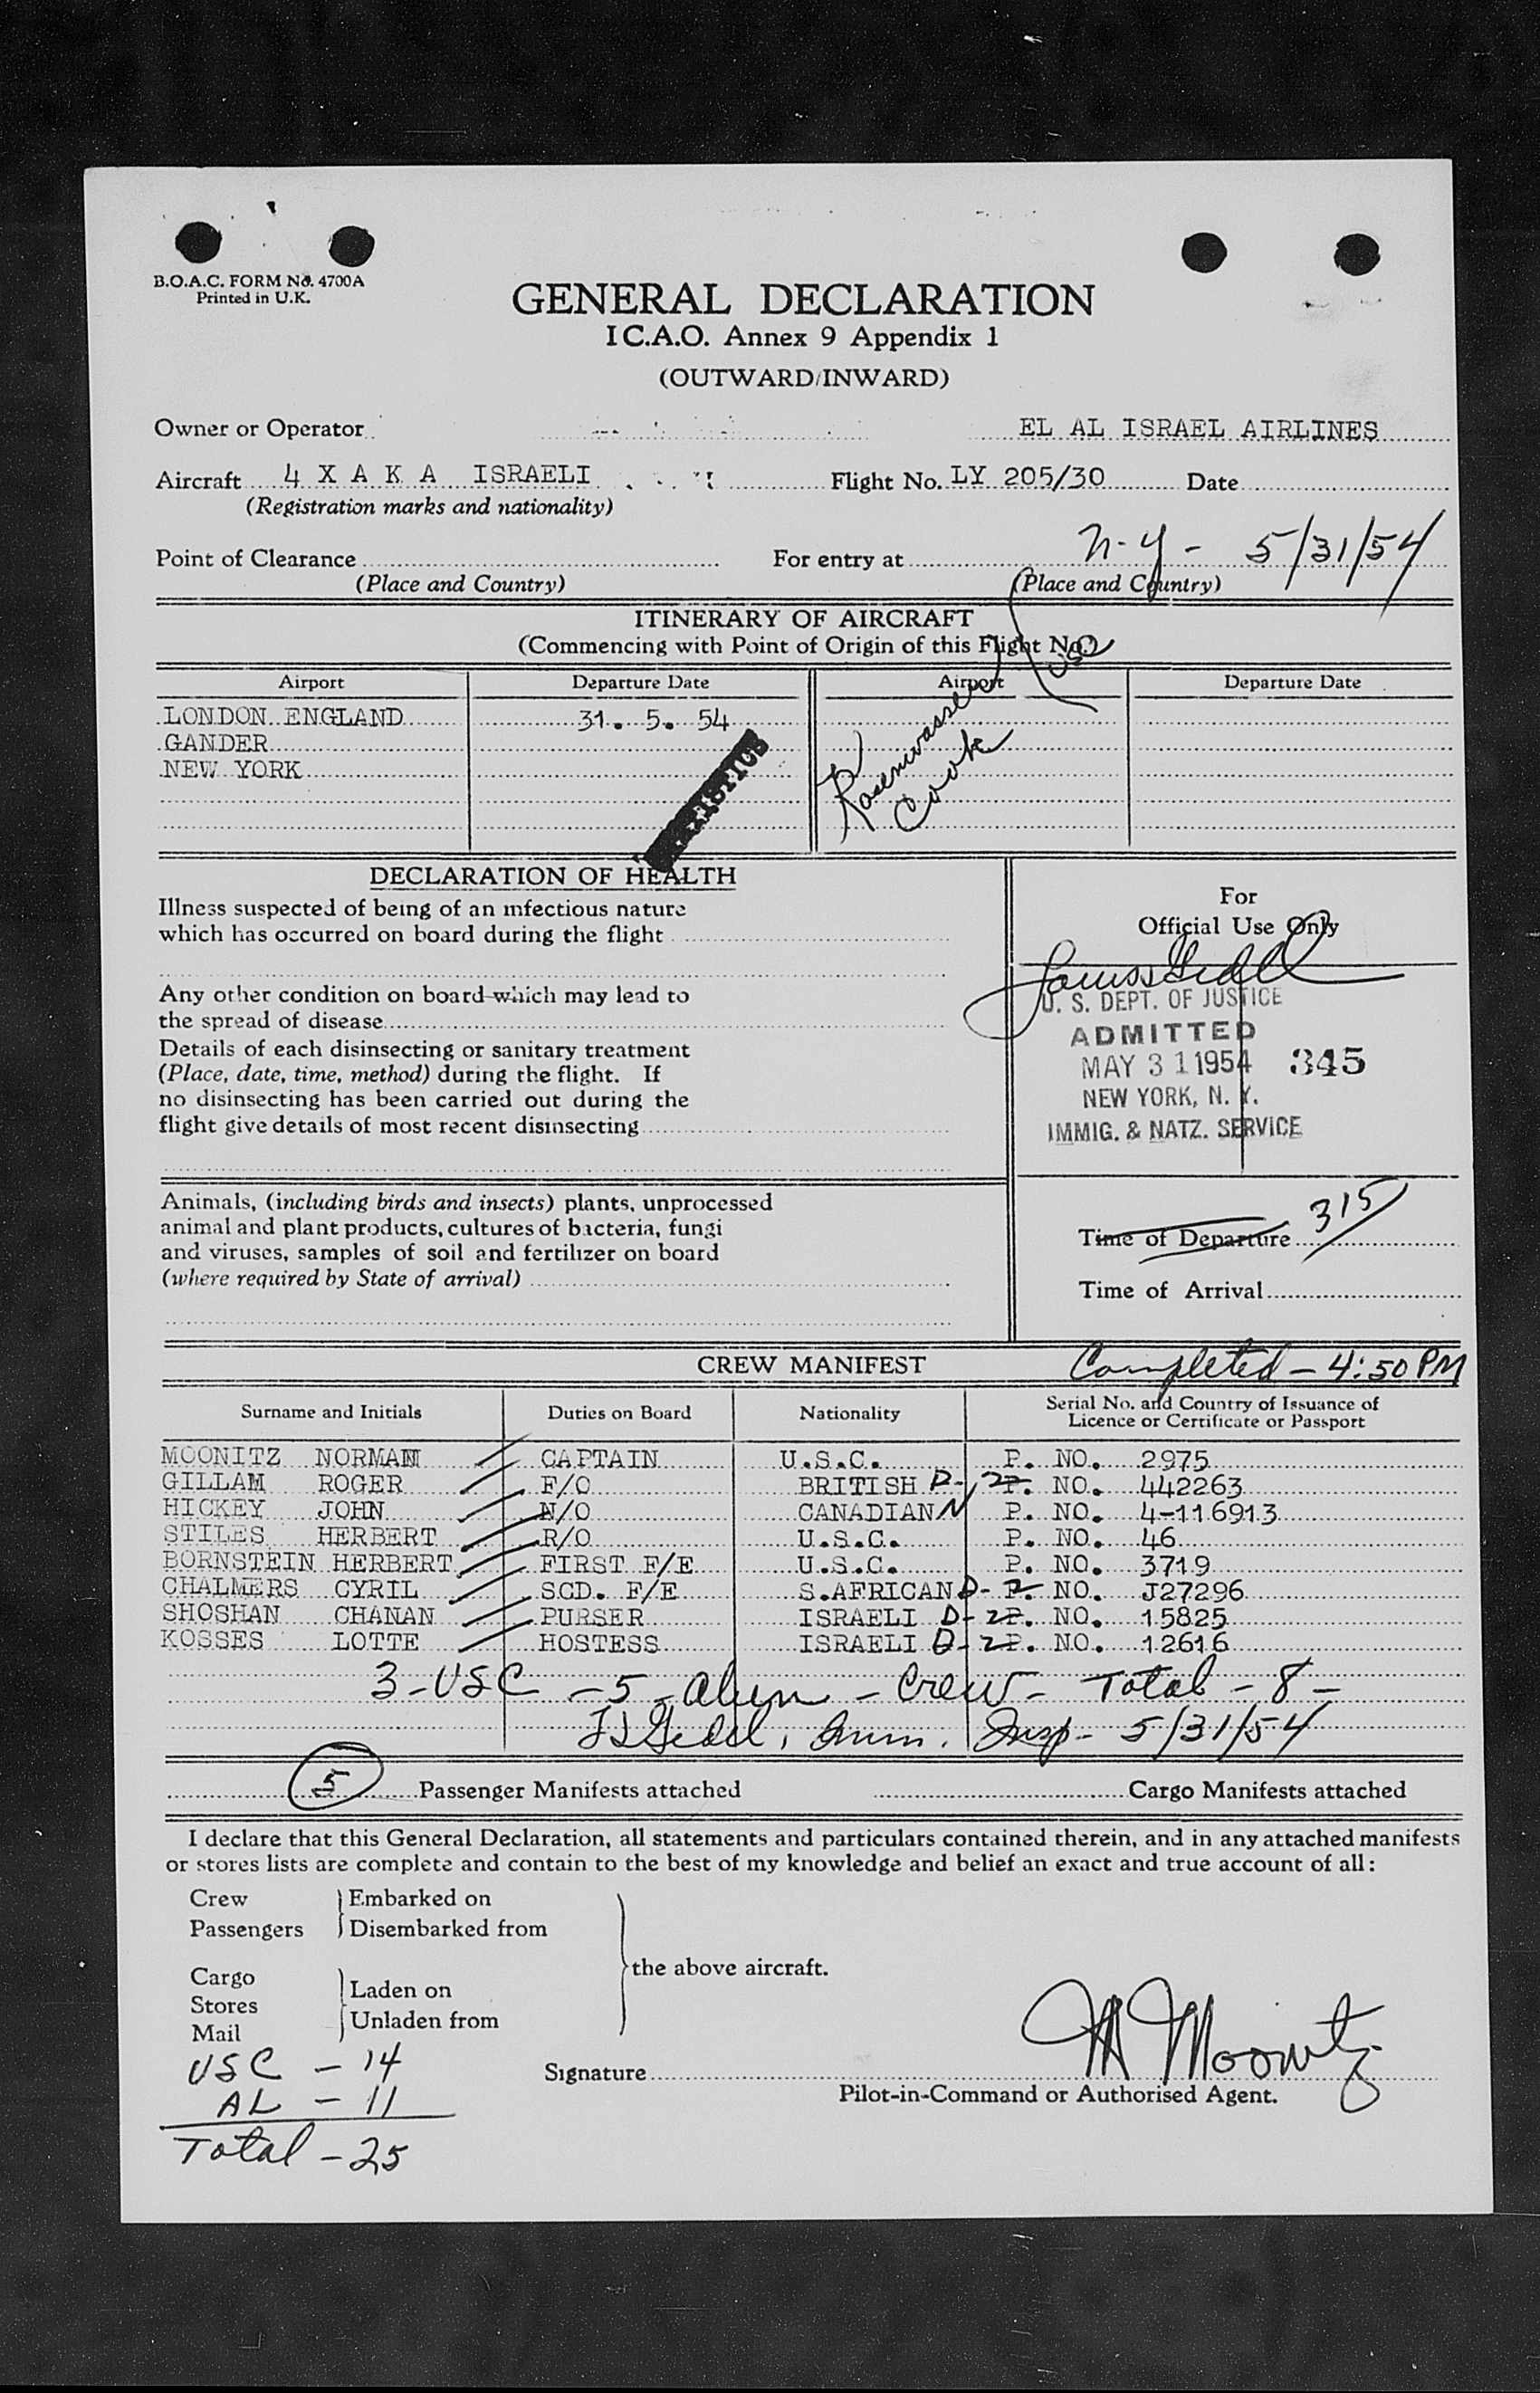 B.O.A.C. FORM No. 4700A
Printed in U.K.
GENERAL DECLARATION
I C.A.O. Annex 9 Appendix 1
(OUTWARD/INWARD)
Owner or Operator EL AL ISRAEL AIRLINES
Aircraft 4 X A K A ISRAELI Flight No. LY 205/30 Date
(Registration marks and nationality)
Point of Clearance For entry at N.Y - 5/31/54
(Place and Country) (Place and Country)
ITINERARY OF AIRCRAFT
(Commencing with Point of Origin of this Flight No.)
Airport Departure Date Airport Departure Date
LONDON ENGLAND 31. 5. 54
GANDER
NEW YORK
Rosenwasser
Cook
USC
DECLARATION OF HEALTH
Illness suspected of being of an infectious nature
which has occurred on board during the flight
Any other condition on board which may lead to
the spread of disease
Details of each disinsecting or sanitary treatment
(Place, date, time, method) during the flight. If
no disinsecting has been carried out during the
flight give details of most recent disinsecting
Animals, (including birds and insects) plants, unprocessed
animal and plant products, cultures of bacteria, fungi
and viruses, samples of soil and fertilizer on board
(where required by State of arrival)
For
Official Use Only
U. S. DEPT. OF JUSTICE
ADMITTED
MAY 31 1954 345
NEW YORK, N. Y.
IMMIG. & NATZ. SERVICE
Time of Departure 315
Time of Arrival
CREW MANIFEST Completed - 4:50 PM
Surname and Initials Duties on Board Nationality Serial No. and Country of Issuance of
Licence or Certificate or Passport
MOONITZ NORMAN CAPTAIN U.S.C. P. NO. 2975
GILLAM ROGER F/O BRITISH D-2 P. NO. 442263
HICKEY JOHN N/O CANADIAN N P. NO. 4-116913
STILES HERBERT R/O U.S.C. P. NO. 46
BORNSTEIN HERBERT FIRST F/E U.S.C. P. NO. 3719
CHALMERS CYRIL SCD. F/E S.AFRICAN D-2 P. NO. J27296
SHOSHAN CHANAN PURSER ISRAELI D-2 P. NO. 15825
KOSSES LOTTE HOSTESS ISRAELI D-2 P. NO. 12616
3-USC - 5-alien - Crew - Total - 8 -
Imm. Insp - 5/31/54
5 Passenger Manifests attached Cargo Manifests attached
I declare that this General Declaration, all statements and particulars contained therein, and in any attached manifests
or stores lists are complete and contain to the best of my knowledge and belief an exact and true account of all:
Crew Embarked on
Passengers Disembarked from
the above aircraft.
Cargo
Stores Laden on
Mail Unladen from
USC - 14
AL - 11
Total - 25
Signature N Moonitz
Pilot-in-Command or Authorised Agent.